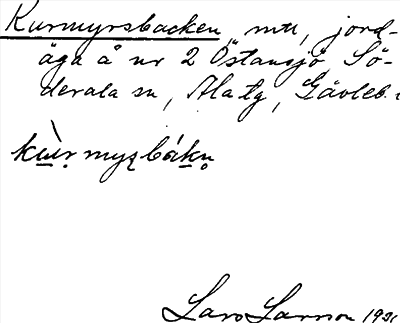 Kurmyrsbacken, mtl, jord-
äga å nr 2 Östansjö, Sö-
derala sn, Ala tg, Gävleb.
kùrmyʂbákn̥
Lars Larsson